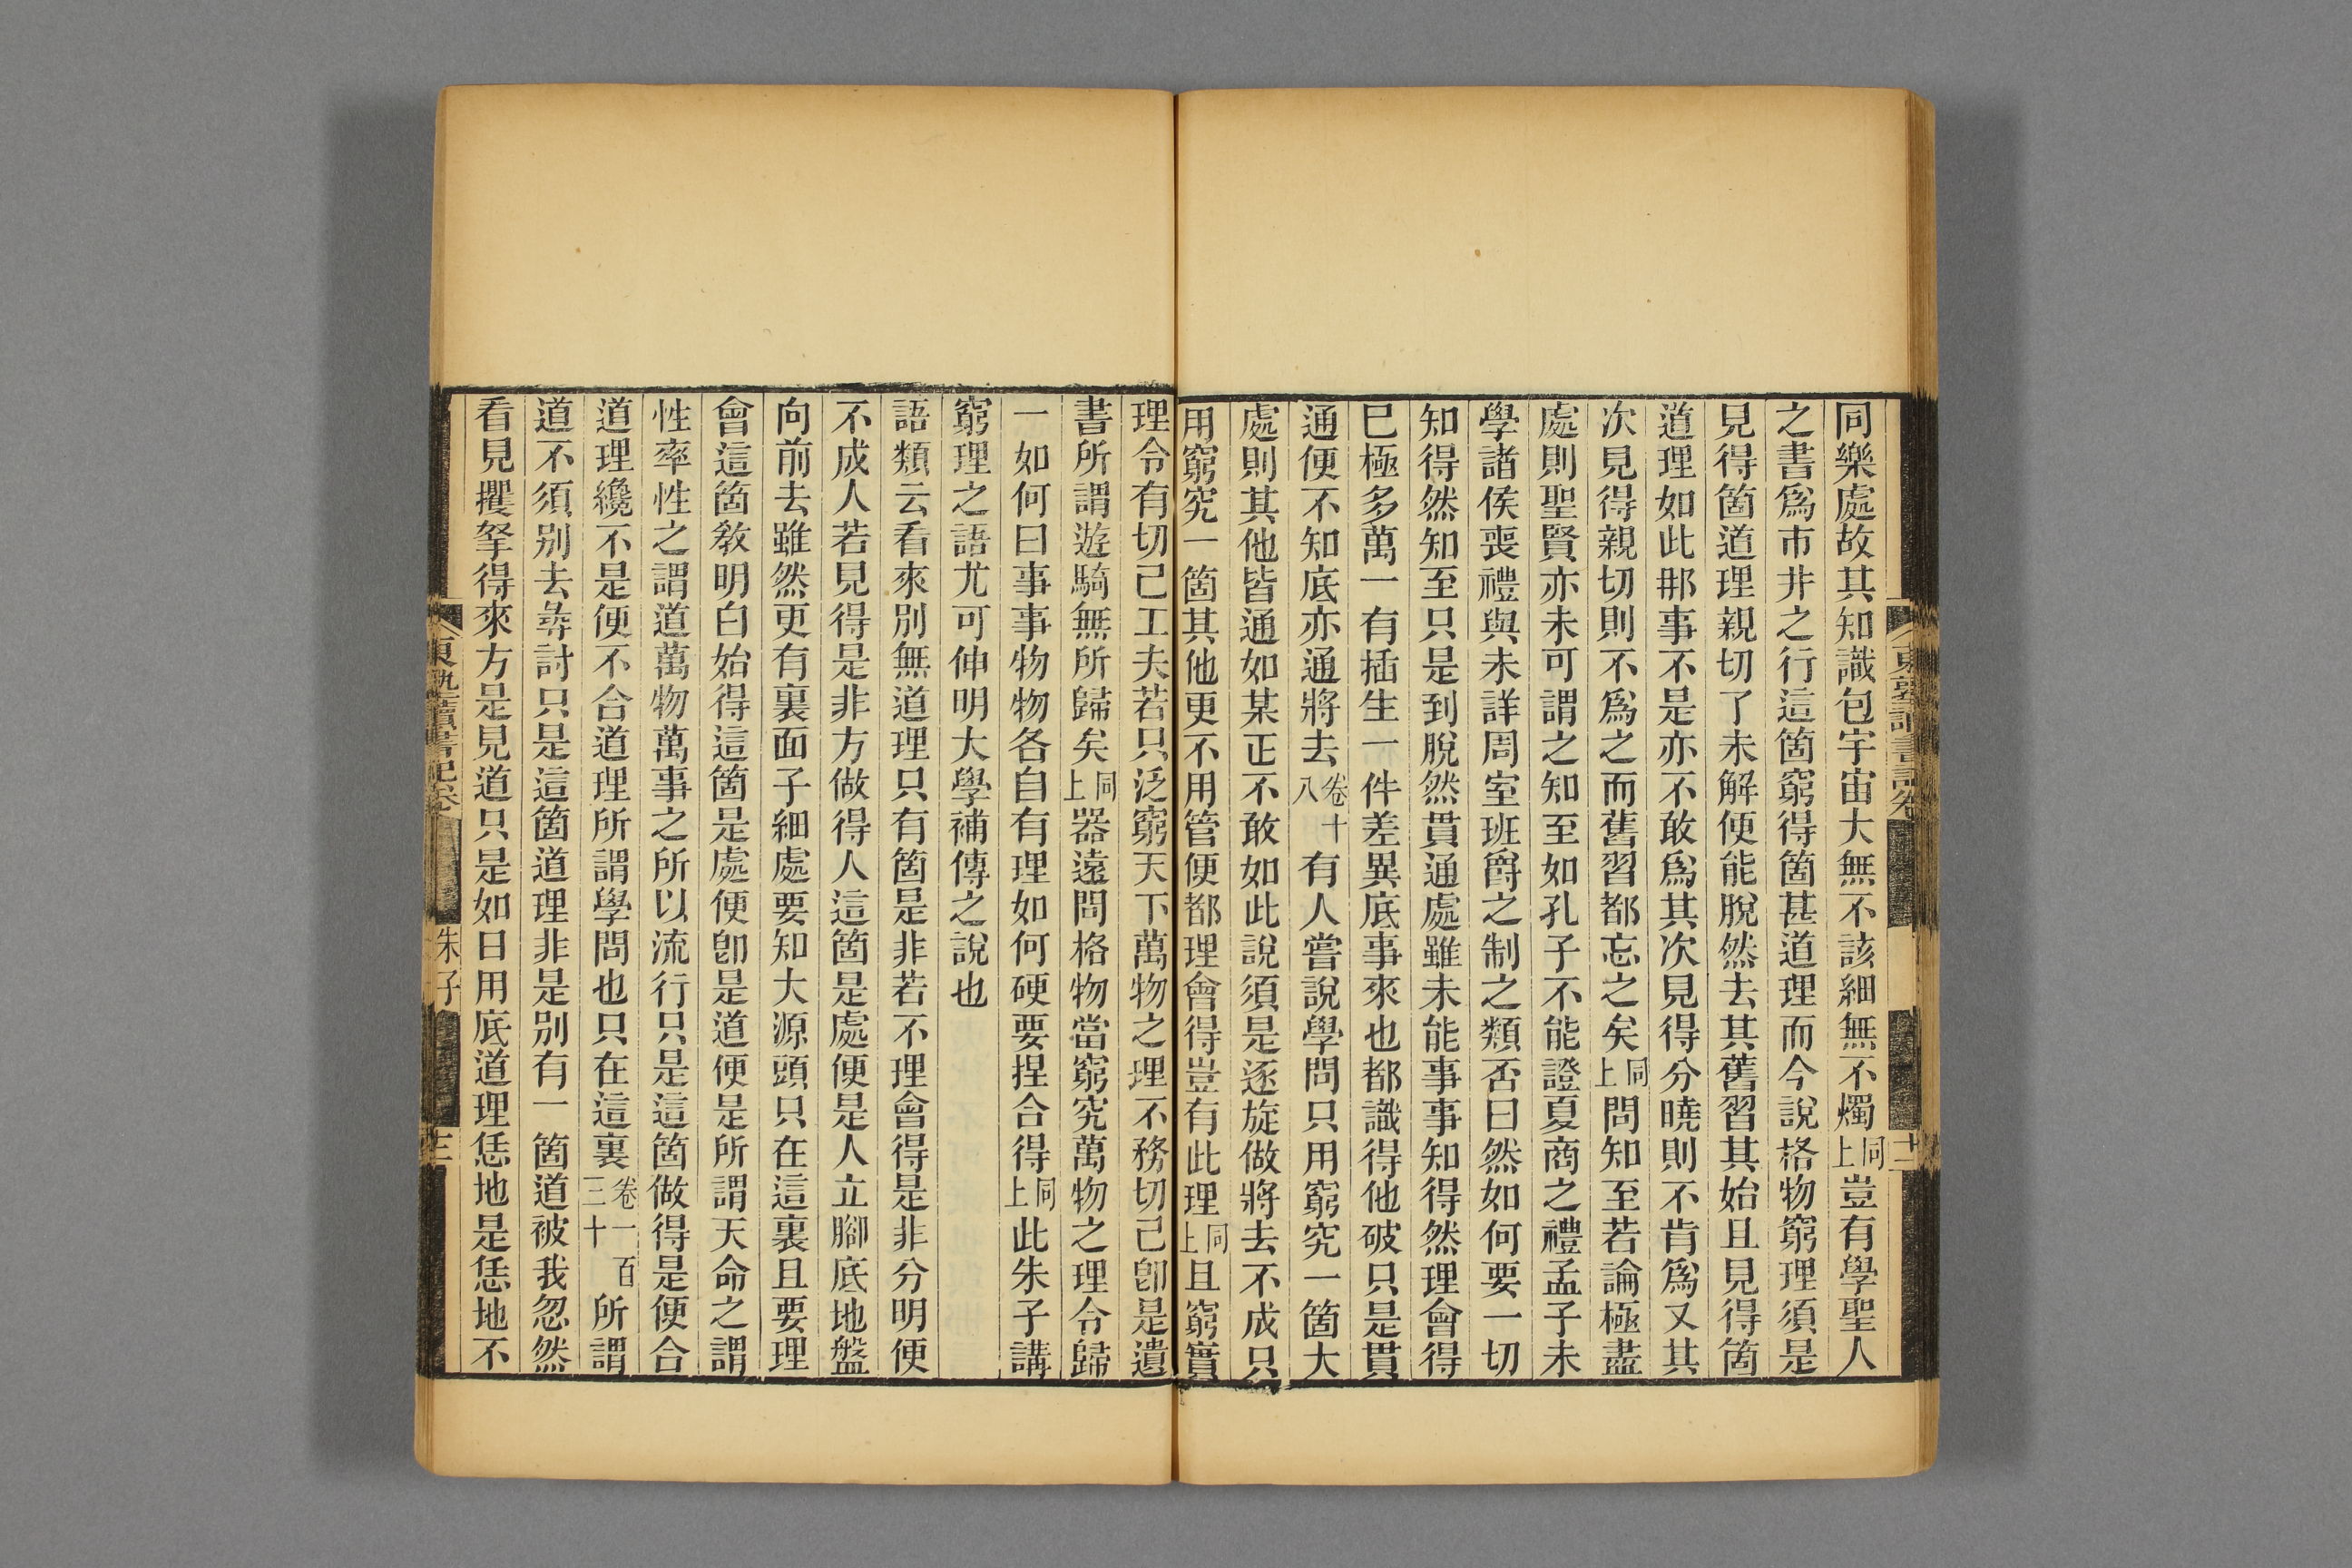 同樂處故其知識包宇宙大無不該細無不燭同上豈有學聖人
之書爲市井之行這箇窮得箇甚道理而今說格物窮理須是
見得箇道理親切了未解便能脫然去其舊習其始且見得箇
道理如此那事不是亦不敢爲其次見得分曉則不肯爲又其
次見得親切則不爲之而舊習都忘之矣同上問知至若論極盡
處則聖賢亦未可謂之知至如孔子不能證夏商之禮孟子未
學諸侯喪禮與未詳周室班爵之制之類否曰然如何要一切
知得然知至只是到脫然貫通處雖未能事事知得然理會得
已極多萬一有插生一件差異底事來也都識得他破只是貫
通便不知底亦通將去卷十八有人嘗說學問只用窮究一箇大
處則其他皆通如某正不敢如此說須是逐旋做將去不成只
用窮究一箇其他更不用管便都理會得豈有此理同上且窮實
理令有切己工夫若只泛窮天下萬物之理不務切己卽是遺
書所謂遊騎無所歸矣同上器遠問格物當窮究萬物之理令歸
一如何曰事事物物各自有理如何硬要捏合得同上此朱子講
窮理之語尤可伸明大學補傳之說也
語類云看來別無道理只有箇是非若不理會得是非分明便
不成人若見得是非方做得人這箇是處便是人立腳底地盤
向前去雖然更有裏面子細處要知大源頭只在這裏且要理
會這箇敎明白始得這箇是處便卽是道便是所謂天命之謂
性率性之謂道萬物萬事之所以流行只是這箇做得是便合
道理纔不是便不合道理所謂學問也只在這裏卷一百三十所謂
道不須別去尋討只是這箇道理非是別有一箇道被我忽然
看見攫拏得來方是見道只是如日用底道理恁地是恁地不
東塾讀書記卷
朱子